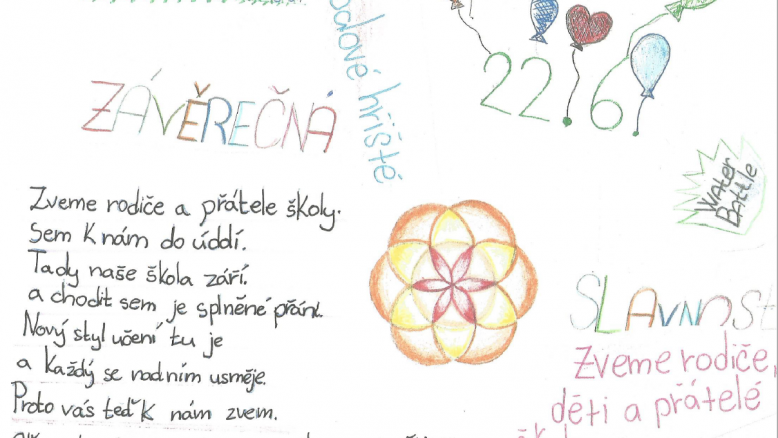 22.6.
ZÁVĚREČNÁ
hřiště
Water
Battle
Zveme rodiče a přátele školy.
Sem k nám do úddí.
Tady naše škola září.
a chodit sem je splněné přání.
Nový styl učení tu je
a každý se nad ním usměje.
Proto vás teď k nám zvem.
SLAVNOST
Zveme rodiče,
děti a přátelé